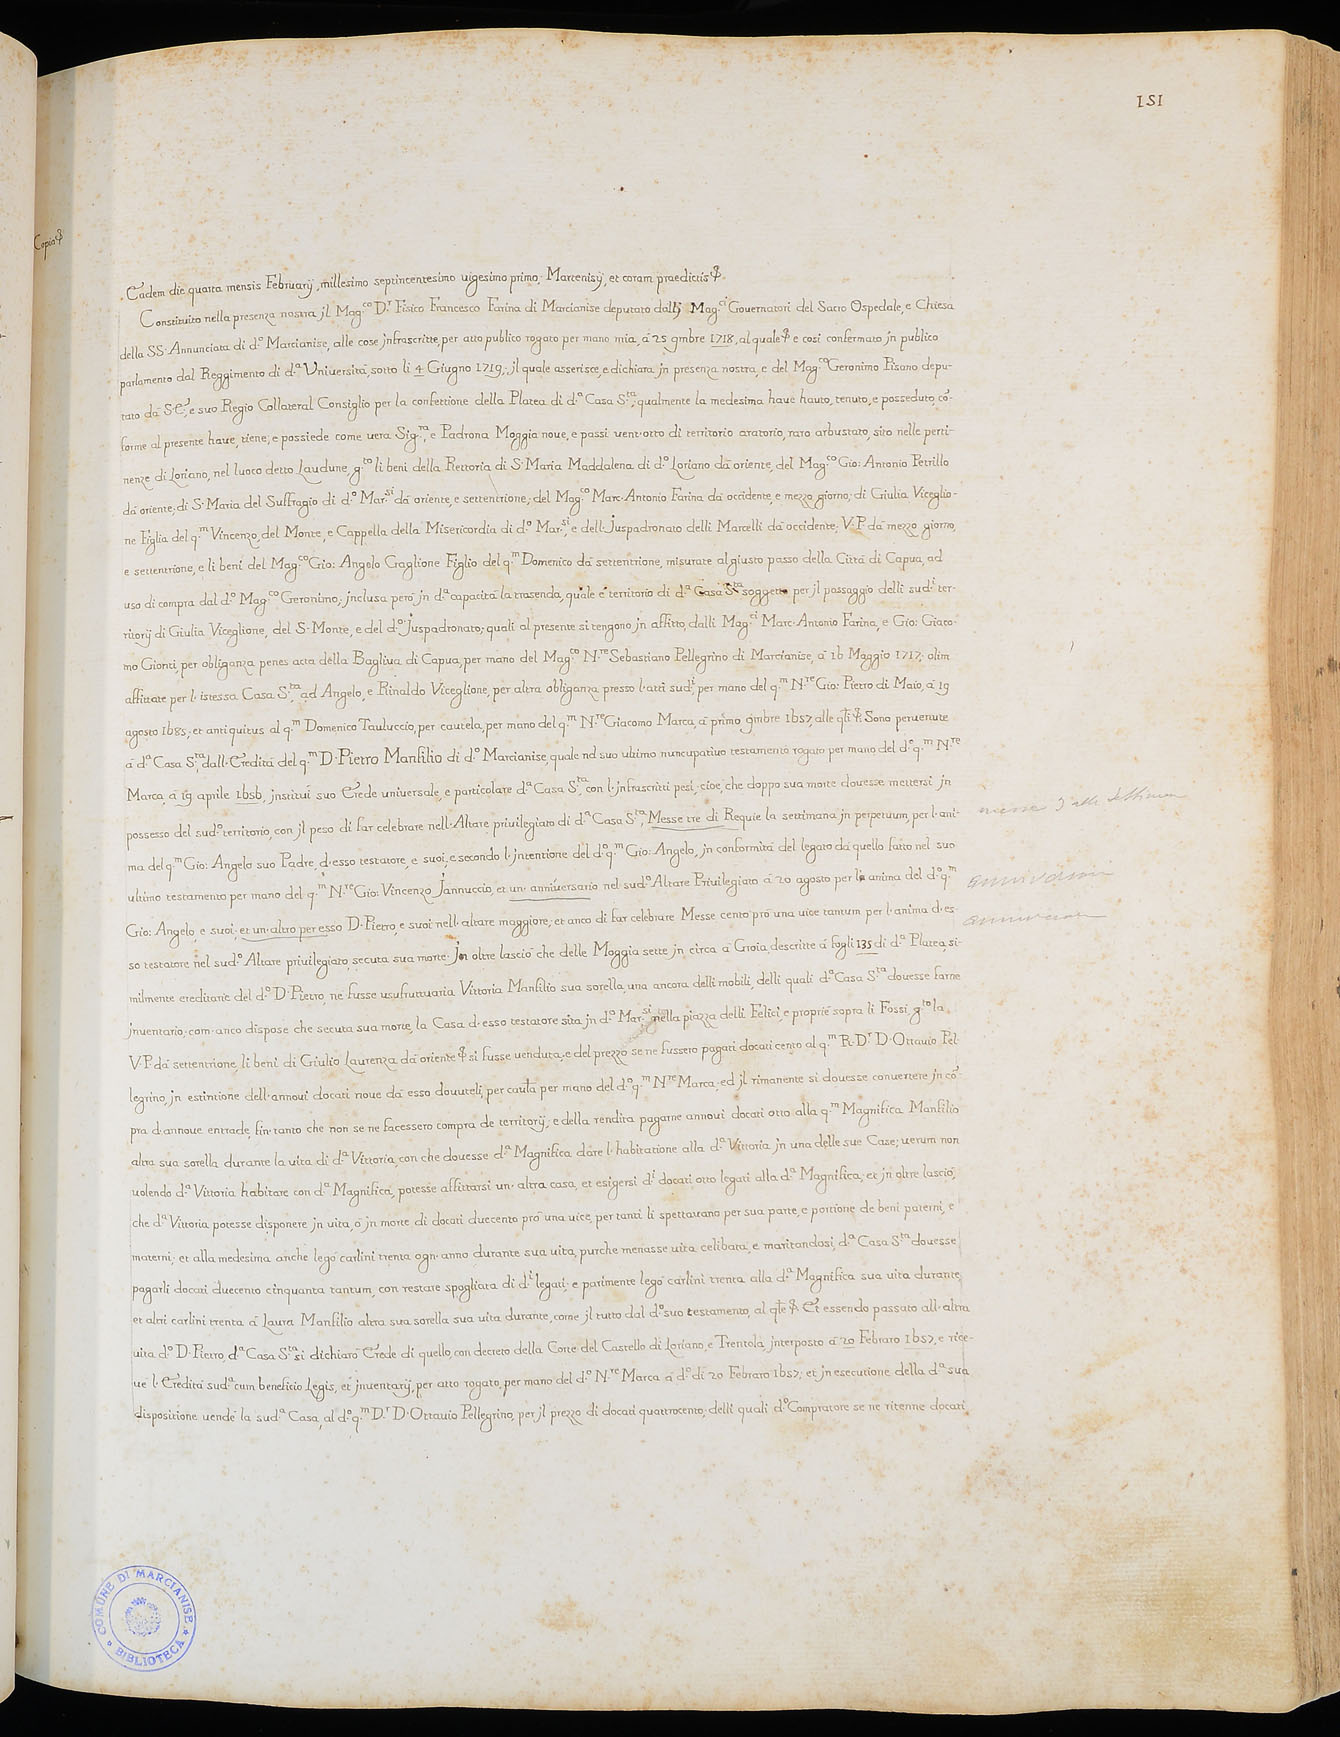 151
Copia
Eadem die quarta mensis Februarij, millesimo septincentesimo uigesimo primo, Marcenisij, et coram praedictis &.
Constituito nella presenza nostra jl Mag.co D.r Fisico Francesco Farina di Marcianise deputato dalli Mag.ci Gouernatori del Sacro Ospedale, e Chiesa
della SS. Annunciata di d.o Marcianise, alle cose jnfrascritte, per atto publico rogato per mano mia, à 25 9mbre 1718, al quale & e così confermato jn publico
parlamento dal Reggimento di d.a Vniuersità, sotto li 4 Giugno 1719; jl quale asserisce, e dichiara jn presenza nostra, e del Mag.co Geronimo Pisano, depu-
tato dà S.E., e suo Regio Collateral Consiglio per la confettione della Platea di d.a Casa S.ta, qualmente la medesima haue hauto, tenuto, e posseduto, cō-
forme al presente haue, tiene, e possiede come uera Sig.ra, e Padrona Moggia noue, e passi uent'otto di territorio aratorio, raro arbustato, sito nelle perti-
nenze di Loriano, nel luoco detto Laudune, g.to li beni della Rettoria di S. Maria Maddalena di d.o Loriano dà oriente, del Mag.co Gio: Antonio Petrillo
dà oriente; di S. Maria del Suffragio di d.o Mar.si dà oriente, e settentrione; del Mag.co Marc'Antonio Farina dà occidente, e mezzo giorno; di Giulia Viceglio-
ne Figlia del q.m Vincenzo, del Monte, e Cappella della Misericordia di d.o Mar.si, e dell'Juspadronato delli Marcelli dà occidente; V.P. dà mezzo giorno,
e settentrione, e li beni del Mag.co Gio: Angelo Gaglione Figlio del q.m Domenico dà settentrione, misurate al giusto passo della Città di Capua, ad
uso di compra dal d.o Mag.co Geronimo; jnclusa però jn d.a capacità la trasenda, quale è territorio di d.a Casa S.ta soggetta per jl passaggio delli sud.i ter-
ritorij di Giulia Viceglione, del S. Monte, e del d.o Juspadronato; quali al presente si tengono jn affitto, dalli Mag.ci Marc'Antonio Farina, e Gio: Giaco-
mo Gionti, per obliganza penes acta della Bagliua di Capua, per mano del Mag.co N.re Sebastiano Pellegrino di Marcianise, à 16 Maggio 1717; olim
affittate per l'istessa Casa S.ta, ad Angelo, e Rinaldo Viceglione, per altra obliganza presso l'atti sud.i per mano del q.m N.re Gio: Pietro di Maio, à 19
agosto 1685; et antiquitus al q.m Domenico Tauluccio, per cautela, per mano del q.m N.re Giacomo Marca, à primo 9mbre 1657, alle q̄li &. Sono peruenute
à d.a Casa S.ta, dall'Eredità del q.m D. Pietro Manfilio di d.o Marcianise, quale nel suo ultimo nuncupatiuo testamento rogato per mano del d.o q.m N.re
Marca, à 19 aprile 1656, jnstituì suo Erede uniuersale, e particolare d.a Casa S.ta, con l'jnfrascritti pesi, cioè, che doppo sua morte douesse mettersi jn
possesso del sud.o territorio, con jl peso di far celebrare nell'Altare priuilegiato di d.a Casa S.ta, Messe tre di Requie la settimana jn perpetuum, per l'ani-
ma del q.m Gio: Angelo suo Padre, d'esso testatore, e suoi, e secondo l'jntentione del d.o q.m Gio: Angelo, jn conformità del legato dà quello fatto nel suo
ultimo testamento per mano del q.m N.re Gio: Vincenzo Jannuccio, et un'anniuersario nel sud.o Altare Priuilegiato à 20 agosto per la anima del d.o q.m
Gio: Angelo, e suoi; et un'altro per esso D. Pietro, e suoi nell'altare maggiore; et anco di far celebrare Messe cento prò una uice tantum per l'anima d'es-
so testatore nel sud.o Altare priuilegiato, secuta sua morte. Jn oltre lasciò che delle Moggia sette jn circa à Gioia, descritte à fogli 135 di d.a Platea, si-
milmente ereditarie del d.o D. Pietro, ne fusse usufruttuaria Vittoria Manfilio sua sorella, una ancora delli mobili, delli quali d.a Casa S.ta douesse farne
jnuentario; com'anco dispose che secuta sua morte, la Casa d'esso testatore sita jn d.o Mar.si nella piazza delli Felici, e propriè sopra li Fossi, g.to la
V.P. dà settentrione, li beni di Giulio Laurenza dà oriente & si fusse uenduta, e del prezzo se ne fussero pagati docati cento al q.m R. D.r D. Ottauio Pel-
legrino, jn estintione dell'annoui docati noue dà esso douuteli, per cautla per mano del d.o q.m N.re Marca, ed jl rimanente si douesse conuertere jn cō-
pra d'annoue entrade, fin'tanto che non se ne facessero compra de territorij; e della rendita pagarne annoui docati otto alla q.m Magnifica Manfilio
altra sua sorella durante la uita di d.a Vittoria, con che douesse d.a Magnifica dare l'habitatione alla d.a Vittoria jn una delle sue Case; uerum non
uolendo d.a Vittoria habitare con d.a Magnifica, potesse affittarsi un'altra casa, et esigersi d.i docati otto legati alla d.a Magnifica; et jn oltre lasciò,
che d.a Vittoria potesse disponere jn uita, ò jn morte di docati duecento prò una uice, per tanti li spettauano per sua parte, e portione de beni paterni, e
materni; et alla medesima anche legò carlini trenta ogn'anno durante sua uita, purche menasse uita celibata, e maritandosi, d.a Casa S.ta douesse
pagarli docati duecento cinquanta tantum, con restare spogliata di d.i legati; e parimente legò carlini trenta alla d.a Magnifica sua uita durante,
et altri carlini trenta à Laura Manfilio altra sua sorella sua uita durante, come jl tutto dal d.o suo testamento, al q̄le &. Et essendo passato all'altra
uita d.o D. Pietro, d.a Casa S.ta si dichiarò Erede di quello, con decreto della Corte del Castello di Loriano, e Trentola, jnterposto à 20 Febraro 1657, e rice-
uè l'Eredità sud.a cum beneficio Legis, et jnuentarij, per atto rogato, per mano del d.o N.re Marca à d.o dì 20 Febraro 1657; et jn esecutione della d.a sua
dispositione uendè la sud.a Casa, al d.o q.m D.r D. Ottauio Pellegrino, per jl prezzo di docati quattrocento, delli quali d.o Compratore se ne ritenne docati
messe 3 alla settimana
anniversario
anniversario
COMUNE DI MARCIANISE
BIBLIOTECA